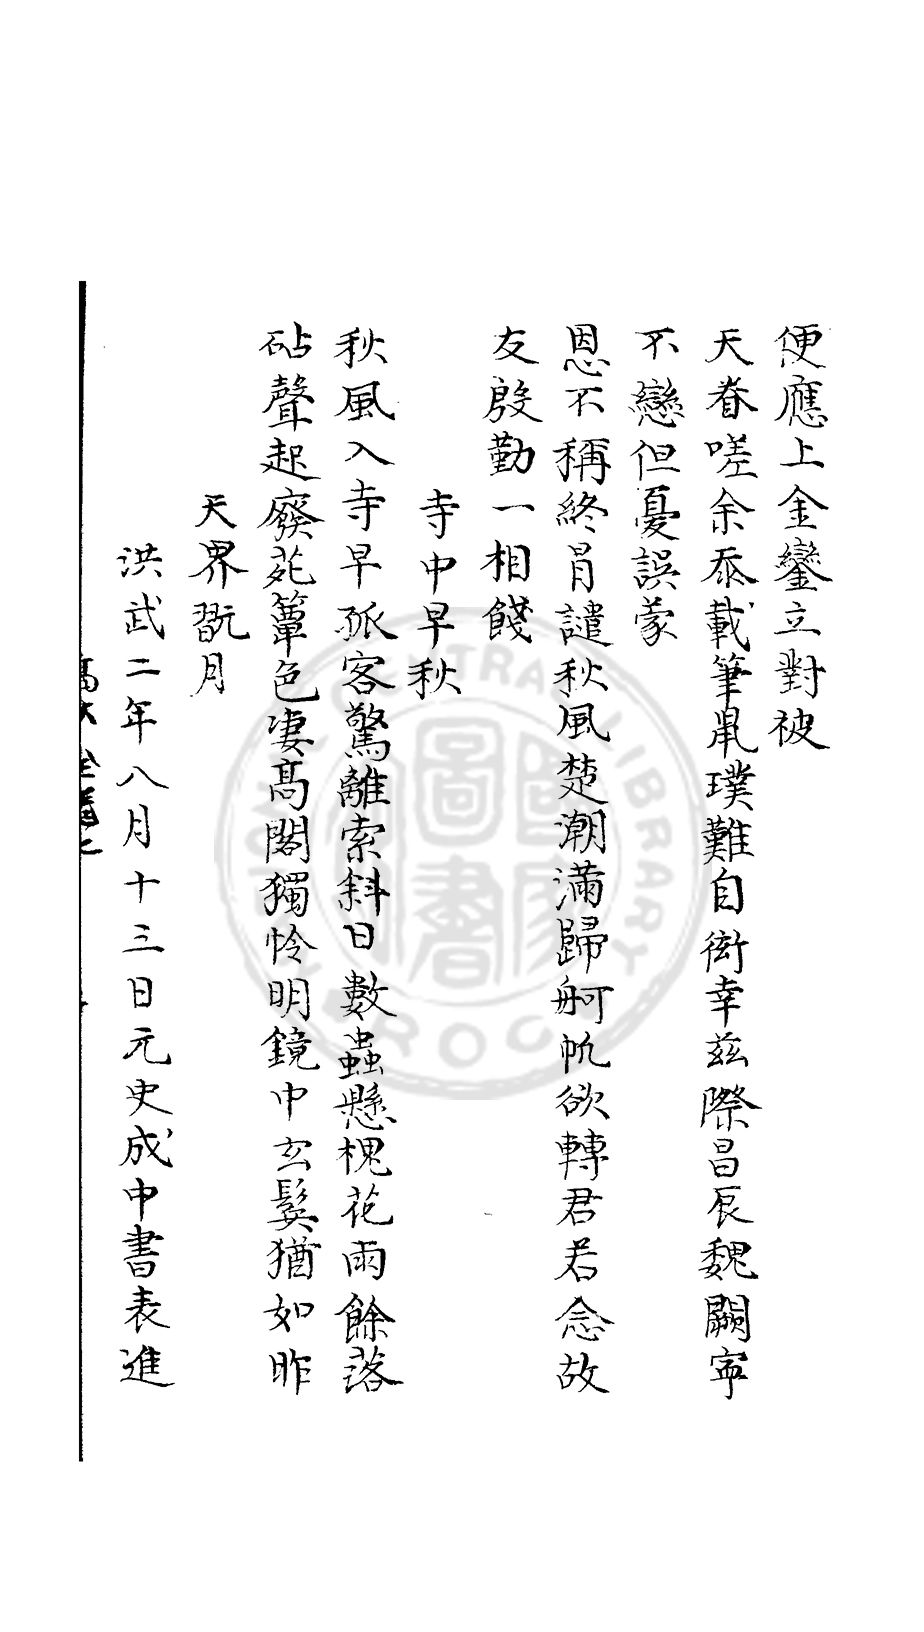 便應上金鑾立對被
天眷嗟余忝載筆鼠璞難自衒幸兹際昌辰魏闕寧
不戀但憂誤蒙
恩不稱終肙譴秋風楚潮滿歸舸帆欲轉君若念故
友殷勤一相餞
寺中早秋
秋風入寺早孤客驚離索斜日數蟲懸槐花雨餘落
砧聲起廢苑簟色凄髙閣獨怜明鏡中玄鬂猶如昨
天界翫月
洪武二年八月十三日元史成中書表進
CENTRAL LIBRARY
國家圖書
R.O.C